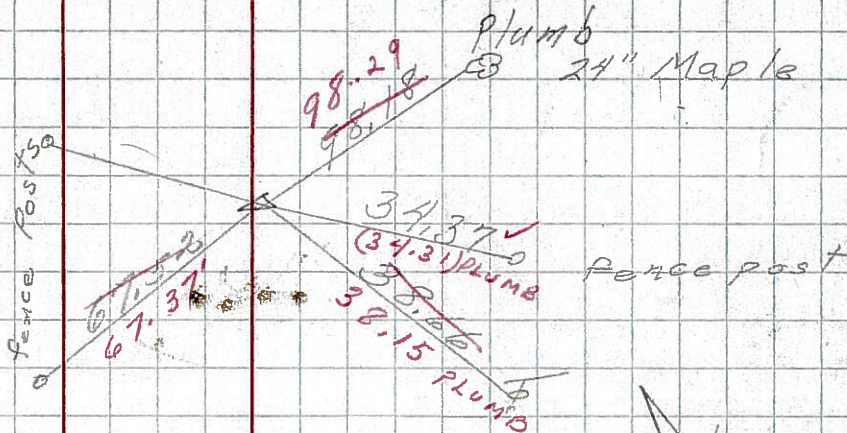 Plumb
24" Maple
98.29
98.18
fence posts
34.37 ✓
(34.31) PLUMB
fence post
67.37'
38.66
38.15 PLUMB